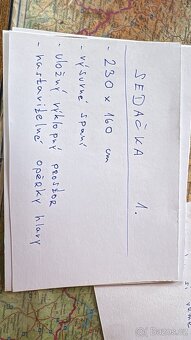 SEDAČKA 1.
- 230 x 160 cm
- výsuvné spaní
- úložný výklopný prostor
- nastavitelné opěrky hlavy